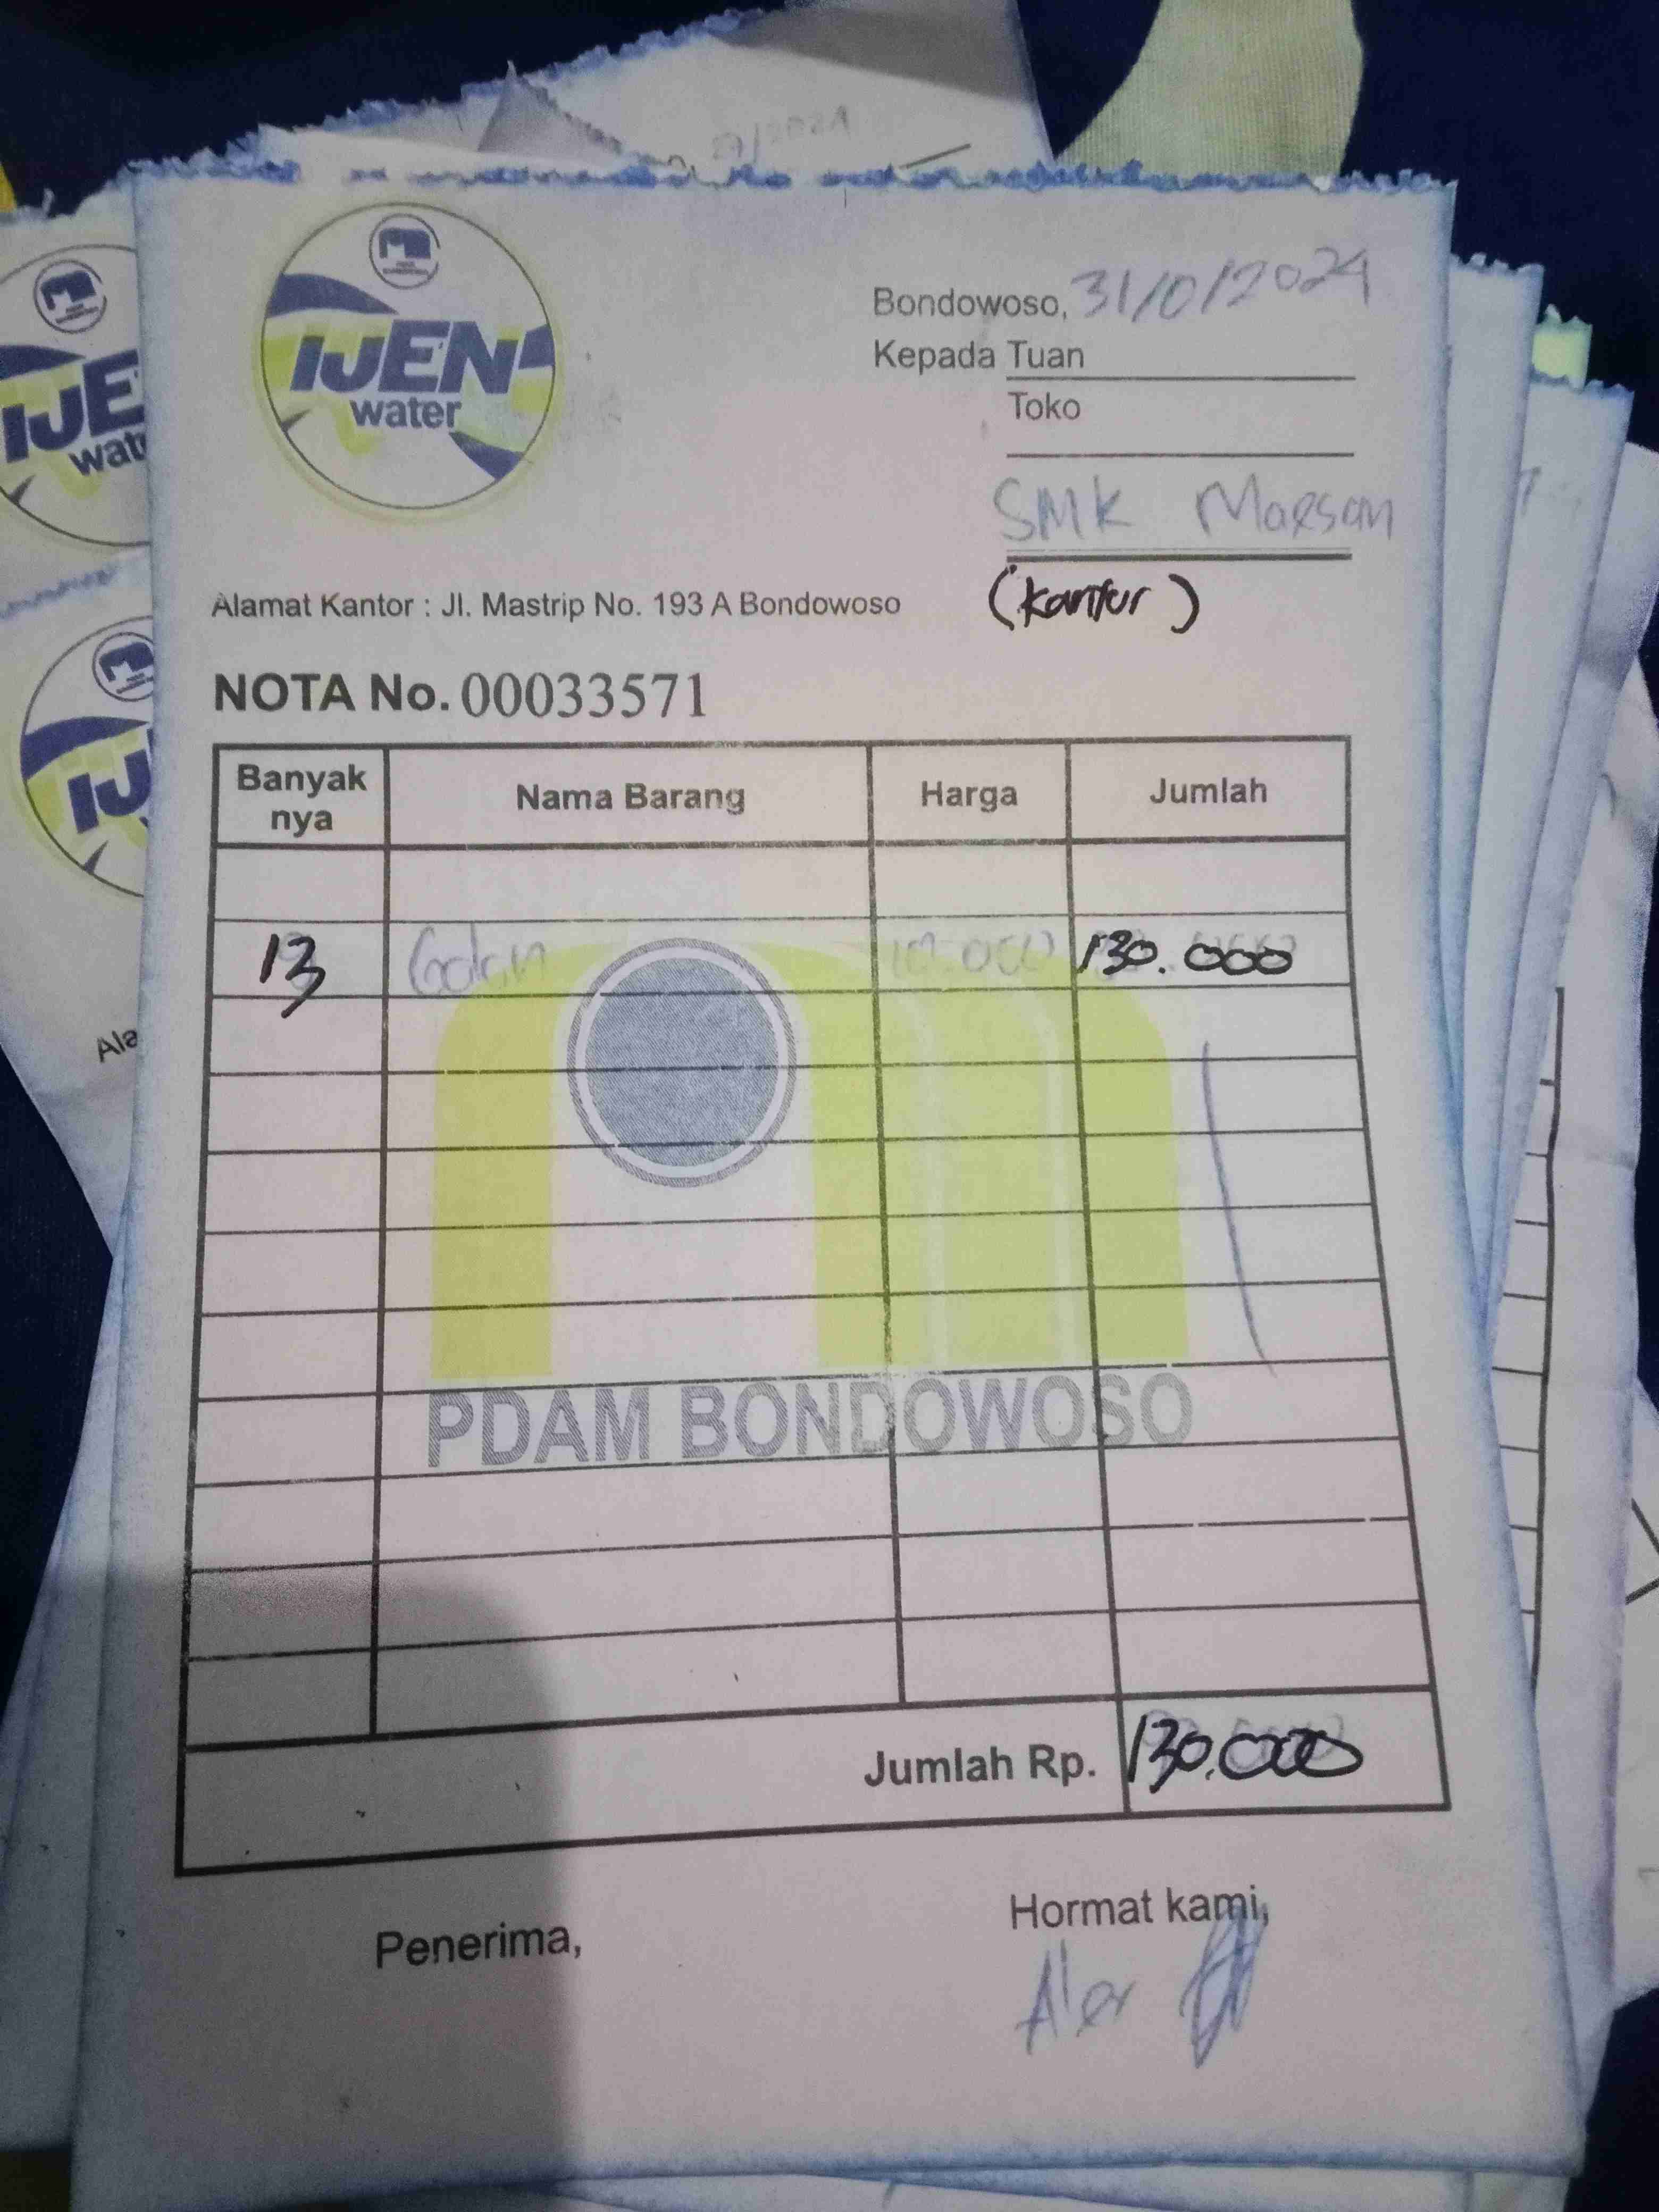 IJEN
water
Bondowoso, 31/0/2024
Kepada Tuan
Toko
SMK Maesan
(Kantor)
Alamat Kantor : Jl. Mastrip No. 193 A Bondowoso
NOTA No. 00033571
Banyak nya Nama Barang Harga Jumlah
13 Galon 10.000 130.000
PDAM BONDOWOSO
Jumlah Rp. 130.000
Penerima,
Hormat kami,
IJE
wat
IJ
Ala